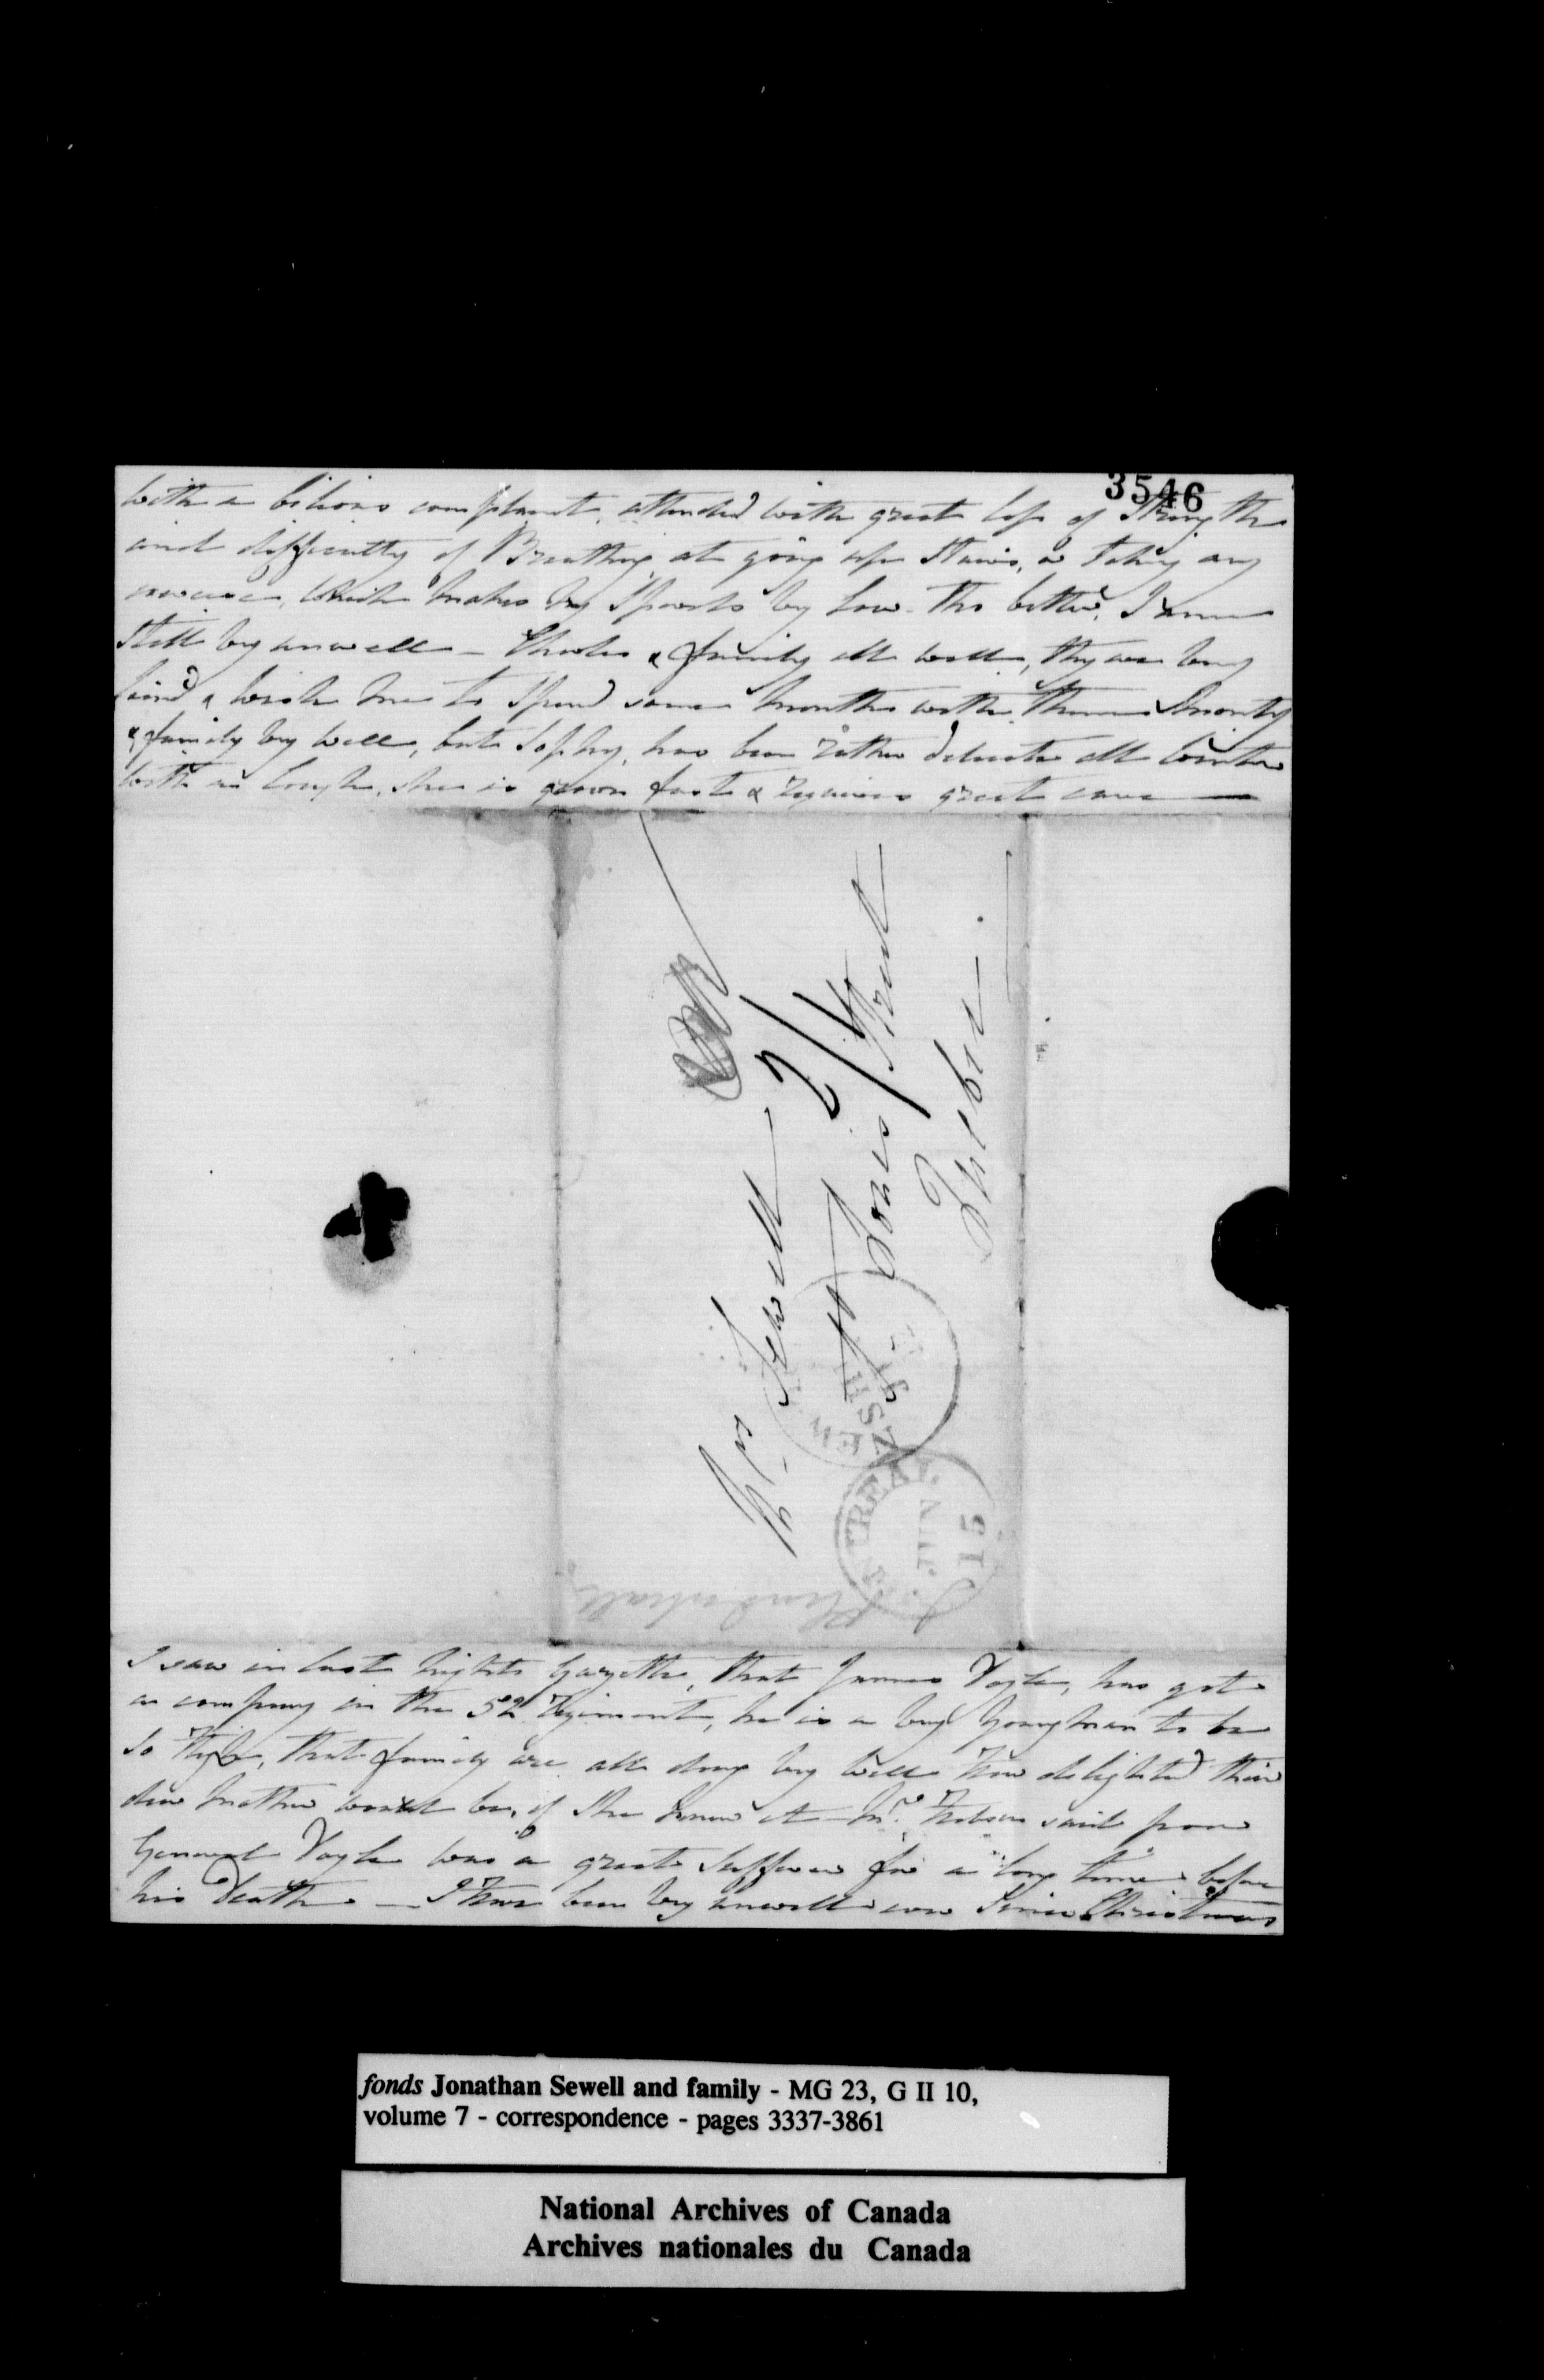 3546
with a bilious complaint, attended with great loss of Strength
and difficulty of Breathing, at going up Stairs, or taking any
exercise, which makes my Spirits very low. Tho better, I am
still very unwell — Charles & family all well, they are very
kind & wish me to spend some months with them
& family very well, but Sophy, has been rather delicate all winter
with a Cough, she is grown fast & requires great care —
Mrs Sewell
2/4
St Louis Street
Quebec
MONTREAL
JUN
15
I saw in last nights Gazette, that James Vogler, has got
a company in the 52 Regiment, he is a very young man to be
so high, that family are all doing very well how delighted their
dear mother would be, if she knew it — Mrs. said poor
General was a great sufferer for a long time before
his death — I have been very unwell ever since Christmas
fonds Jonathan Sewell and family - MG 23, G II 10,
volume 7 - correspondence - pages 3337-3861
National Archives of Canada
Archives nationales du Canada